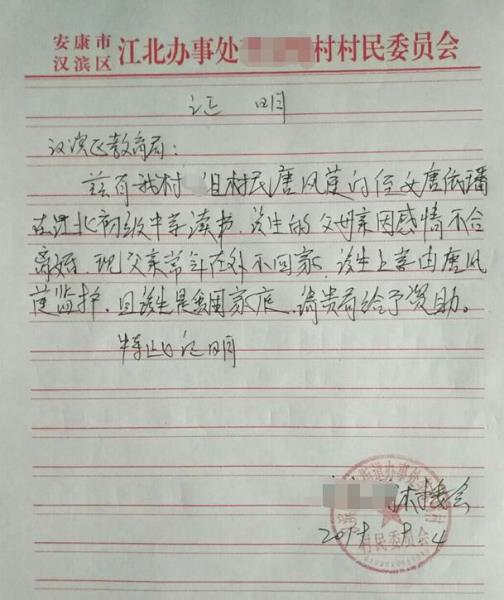 安康市
汉滨区 江北办事处 村村民委员会
证 明
汉滨区教育局：
兹有我村 组村民唐凤莲的侄女唐依璠
在江北初级中学读书，该生的父母亲因感情不合
离婚，现父亲常年在外不回家，该生上学由唐凤
莲监护，且该生是贫困家庭，请贵局给予资助。
特此证明
街道办事处
村民委员会
村委会